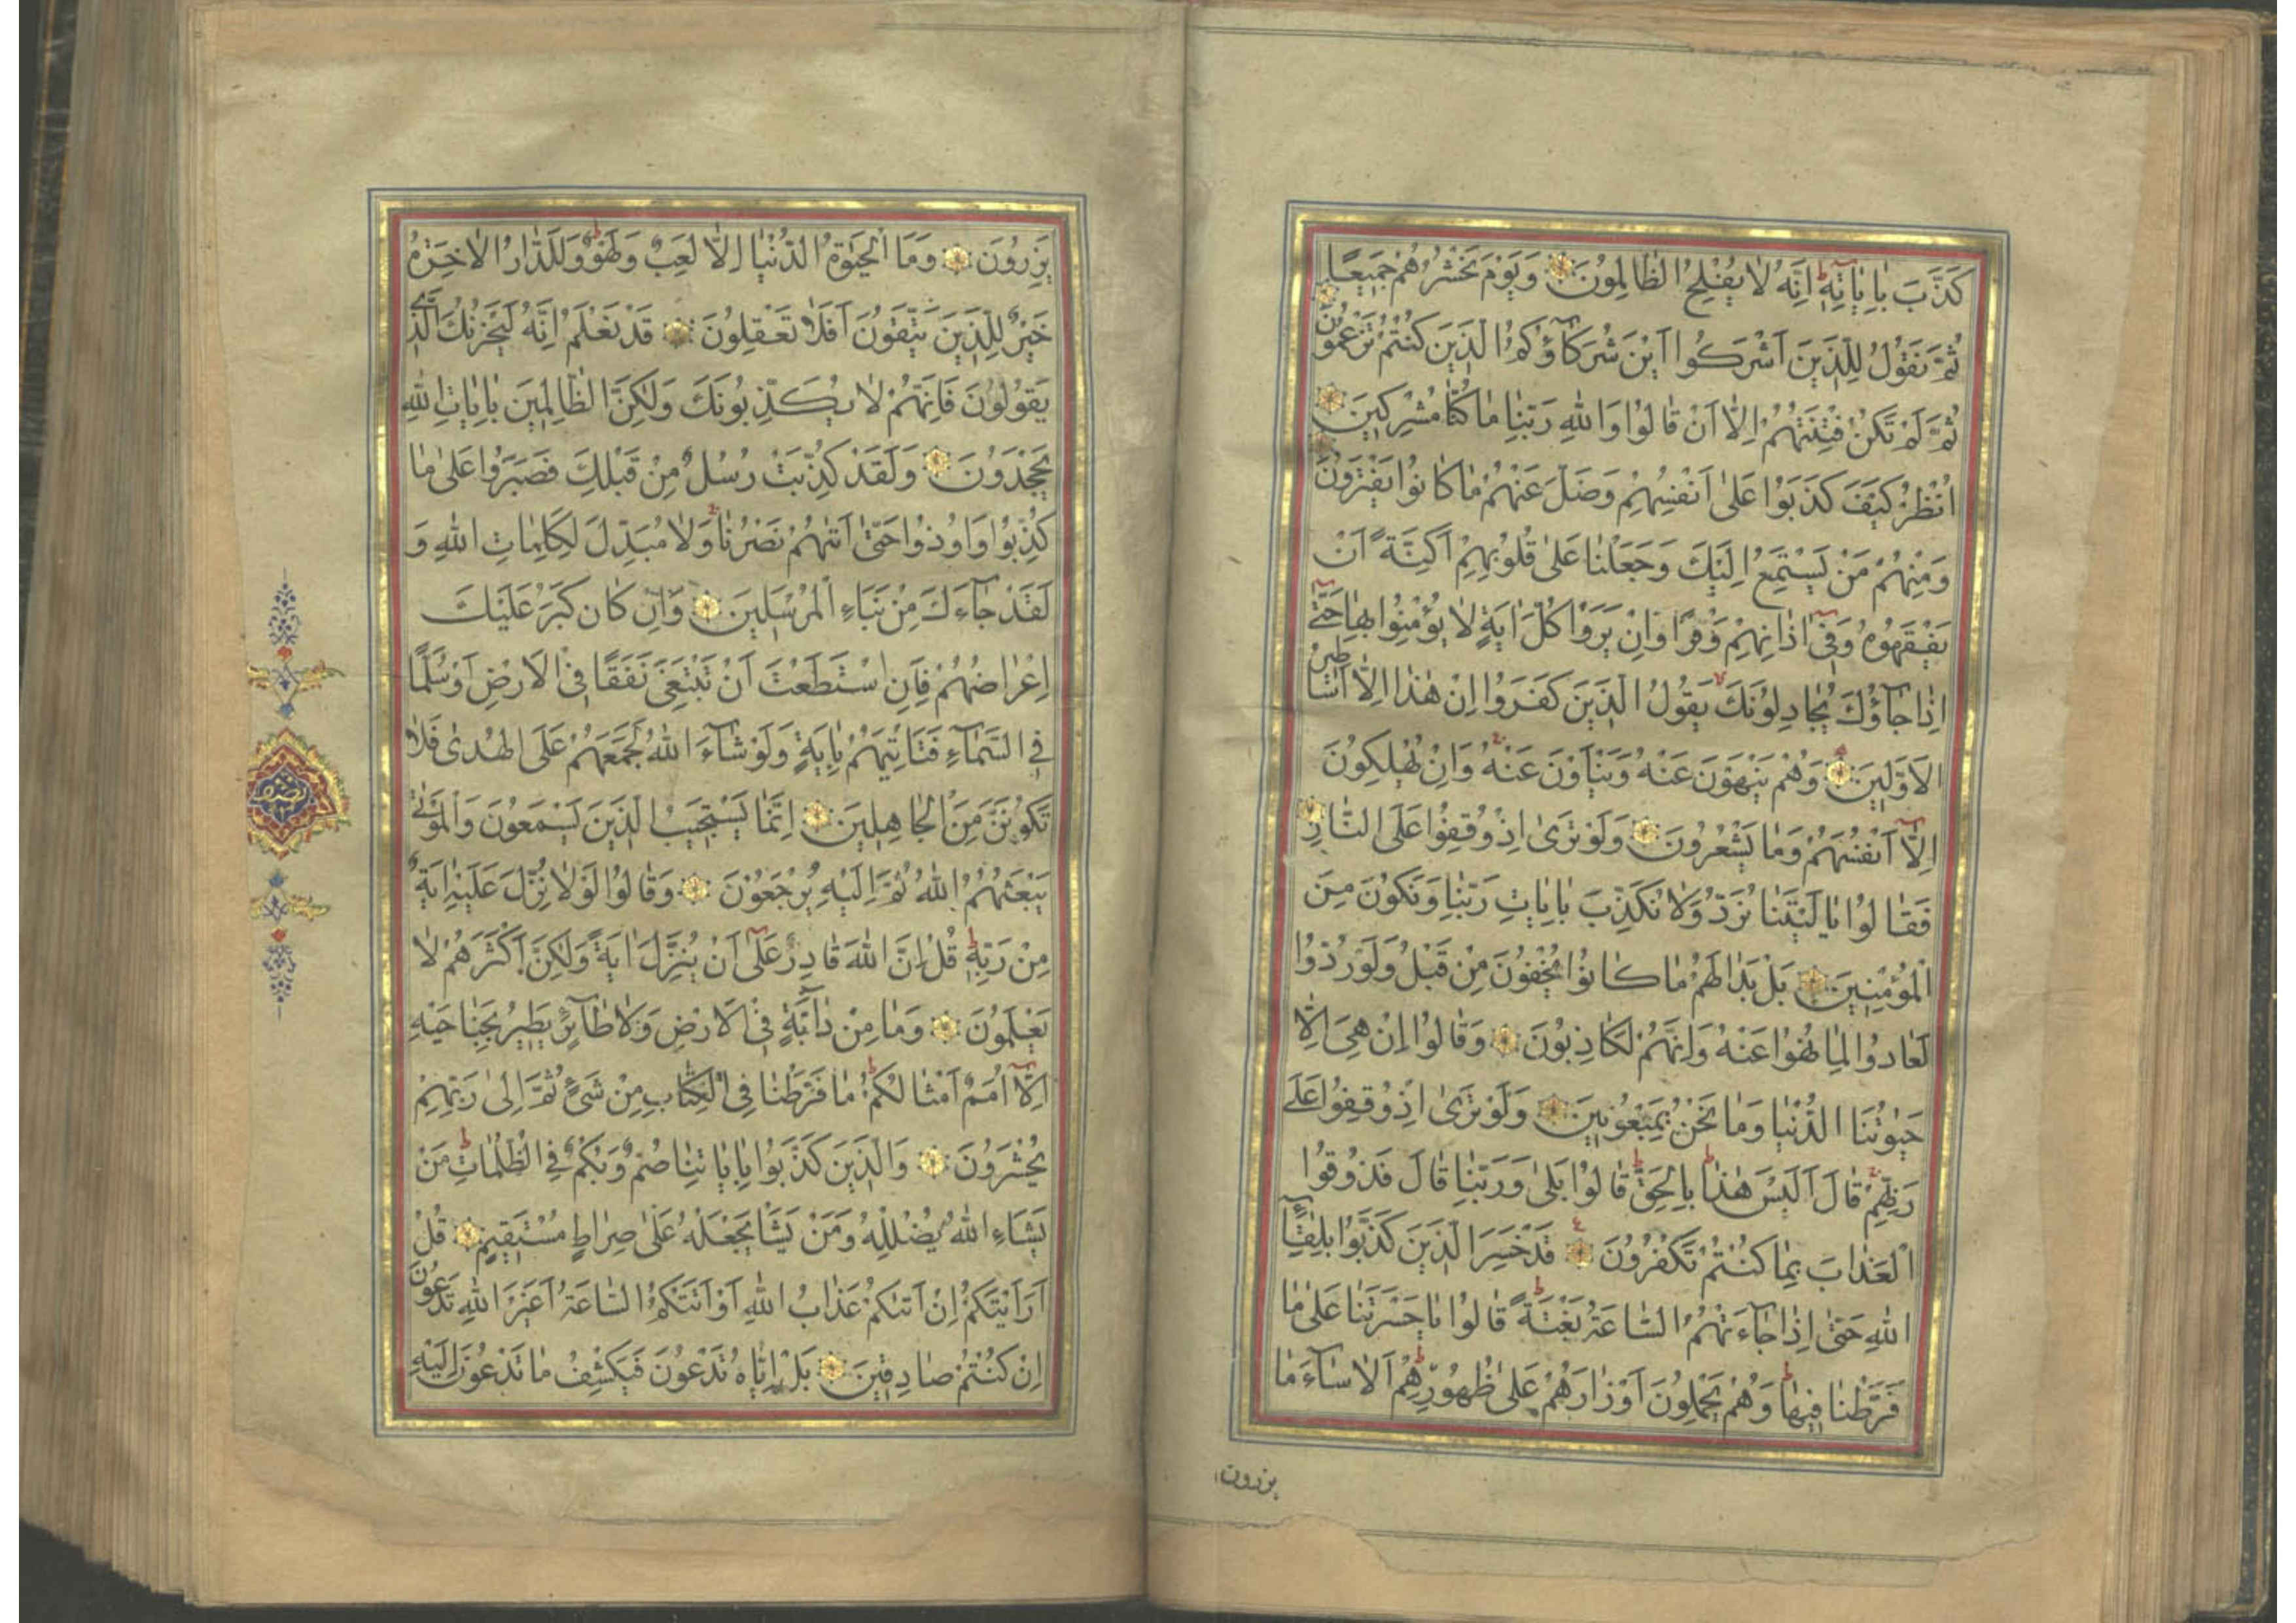 كَذَّبَ بِاٰيَاتِهٖ اِنَّهُ لَا يُفْلِحُ الظَّالِمُونَ وَيَوْمَ نَحْشُرُهُمْ جَمِيعًا
ثُمَّ نَقُولُ لِلَّذِينَ اَشْرَكُوا اَيْنَ شُرَكَاؤُكُمُ الَّذِينَ كُنْتُمْ تَزْعُمُونَ
ثُمَّ لَمْ تَكُنْ فِتْنَتُهُمْ اِلَّا اَنْ قَالُوا وَاللهِ رَبِّنَا مَا كُنَّا مُشْرِكِينَ
اُنْظُرْ كَيْفَ كَذَبُوا عَلٰى اَنْفُسِهِمْ وَضَلَّ عَنْهُمْ مَا كَانُوا يَفْتَرُونَ
وَمِنْهُمْ مَنْ يَسْتَمِعُ اِلَيْكَ وَجَعَلْنَا عَلٰى قُلُوبِهِمْ اَكِنَّةً اَنْ
يَفْقَهُوهُ وَفِى اٰذَانِهِمْ وَقْرًا وَاِنْ يَرَوْا كُلَّ اٰيَةٍ لَا يُؤْمِنُوا بِهَا حَتّٰى
اِذَا جَاؤُكَ يُجَادِلُونَكَ يَقُولُ الَّذِينَ كَفَرُوا اِنْ هٰذَا اِلَّا اَسَاطِيرُ
الْاَوَّلِينَ وَهُمْ يَنْهَوْنَ عَنْهُ وَيَنْاَوْنَ عَنْهُ وَاِنْ يُهْلِكُونَ
اِلَّا اَنْفُسَهُمْ وَمَا يَشْعُرُونَ وَلَوْ تَرٰى اِذْ وُقِفُوا عَلَى النَّارِ
فَقَالُوا يَا لَيْتَنَا نُرَدُّ وَلَا نُكَذِّبَ بِاٰيَاتِ رَبِّنَا وَنَكُونَ مِنَ
الْمُؤْمِنِينَ بَلْ بَدَا لَهُمْ مَا كَانُوا يُخْفُونَ مِنْ قَبْلُ وَلَوْ رُدُّوا
لَعَادُوا لِمَا نُهُوا عَنْهُ وَاِنَّهُمْ لَكَاذِبُونَ وَقَالُوا اِنْ هِىَ اِلَّا
حَيٰوتُنَا الدُّنْيَا وَمَا نَحْنُ بِمَبْعُوثِينَ وَلَوْ تَرٰى اِذْ وُقِفُوا عَلٰى
رَبِّهِمْ قَالَ اَلَيْسَ هٰذَا بِالْحَقِّ قَالُوا بَلٰى وَرَبِّنَا قَالَ فَذُوقُوا
الْعَذَابَ بِمَا كُنْتُمْ تَكْفُرُونَ قَدْ خَسِرَ الَّذِينَ كَذَّبُوا بِلِقَاءِ
اللهِ حَتّٰى اِذَا جَاءَتْهُمُ السَّاعَةُ بَغْتَةً قَالُوا يَا حَسْرَتَنَا عَلٰى مَا
فَرَّطْنَا فِيهَا وَهُمْ يَحْمِلُونَ اَوْزَارَهُمْ عَلٰى ظُهُورِهِمْ اَلَا سَاءَ مَا
يزرون
يَزِرُونَ وَمَا الْحَيٰوةُ الدُّنْيَا اِلَّا لَعِبٌ وَلَهْوٌ وَلَلدَّارُ الْاٰخِرَةُ
خَيْرٌ لِلَّذِينَ يَتَّقُونَ اَفَلَا تَعْقِلُونَ قَدْ نَعْلَمُ اِنَّهُ لَيَحْزُنُكَ الَّذِى
يَقُولُونَ فَاِنَّهُمْ لَا يُكَذِّبُونَكَ وَلٰكِنَّ الظَّالِمِينَ بِاٰيَاتِ اللهِ
يَجْحَدُونَ وَلَقَدْ كُذِّبَتْ رُسُلٌ مِنْ قَبْلِكَ فَصَبَرُوا عَلٰى مَا
كُذِّبُوا وَاُوذُوا حَتّٰى اَتٰيهُمْ نَصْرُنَا وَلَا مُبَدِّلَ لِكَلِمَاتِ اللهِ وَ
لَقَدْ جَاءَكَ مِنْ نَبَاءِ الْمُرْسَلِينَ وَاِنْ كَانَ كَبُرَ عَلَيْكَ
اِعْرَاضُهُمْ فَاِنِ اسْتَطَعْتَ اَنْ تَبْتَغِىَ نَفَقًا فِى الْاَرْضِ اَوْ سُلَّمًا
فِى السَّمَاءِ فَتَاْتِيَهُمْ بِاٰيَةٍ وَلَوْ شَاءَ اللهُ لَجَمَعَهُمْ عَلَى الْهُدٰى فَلَا
تَكُونَنَّ مِنَ الْجَاهِلِينَ اِنَّمَا يَسْتَجِيبُ الَّذِينَ يَسْمَعُونَ وَالْمَوْتٰى
يَبْعَثُهُمُ اللهُ ثُمَّ اِلَيْهِ يُرْجَعُونَ وَقَالُوا لَوْلَا نُزِّلَ عَلَيْهِ اٰيَةٌ
مِنْ رَبِّهٖ قُلْ اِنَّ اللهَ قَادِرٌ عَلٰى اَنْ يُنَزِّلَ اٰيَةً وَلٰكِنَّ اَكْثَرَهُمْ لَا
يَعْلَمُونَ وَمَا مِنْ دَابَّةٍ فِى الْاَرْضِ وَلَا طَائِرٍ يَطِيرُ بِجَنَاحَيْهِ
اِلَّا اُمَمٌ اَمْثَالُكُمْ مَا فَرَّطْنَا فِى الْكِتَابِ مِنْ شَىْءٍ ثُمَّ اِلٰى رَبِّهِمْ
يُحْشَرُونَ وَالَّذِينَ كَذَّبُوا بِاٰيَاتِنَا صُمٌّ وَبُكْمٌ فِى الظُّلُمَاتِ مَنْ
يَشَاءِ اللهُ يُضْلِلْهُ وَمَنْ يَشَاْ يَجْعَلْهُ عَلٰى صِرَاطٍ مُسْتَقِيمٍ قُلْ
اَرَاَيْتَكُمْ اِنْ اَتٰيكُمْ عَذَابُ اللهِ اَوْ اَتَتْكُمُ السَّاعَةُ اَغَيْرَ اللهِ تَدْعُونَ
اِنْ كُنْتُمْ صَادِقِينَ بَلْ اِيَّاهُ تَدْعُونَ فَيَكْشِفُ مَا تَدْعُونَ اِلَيْهِ